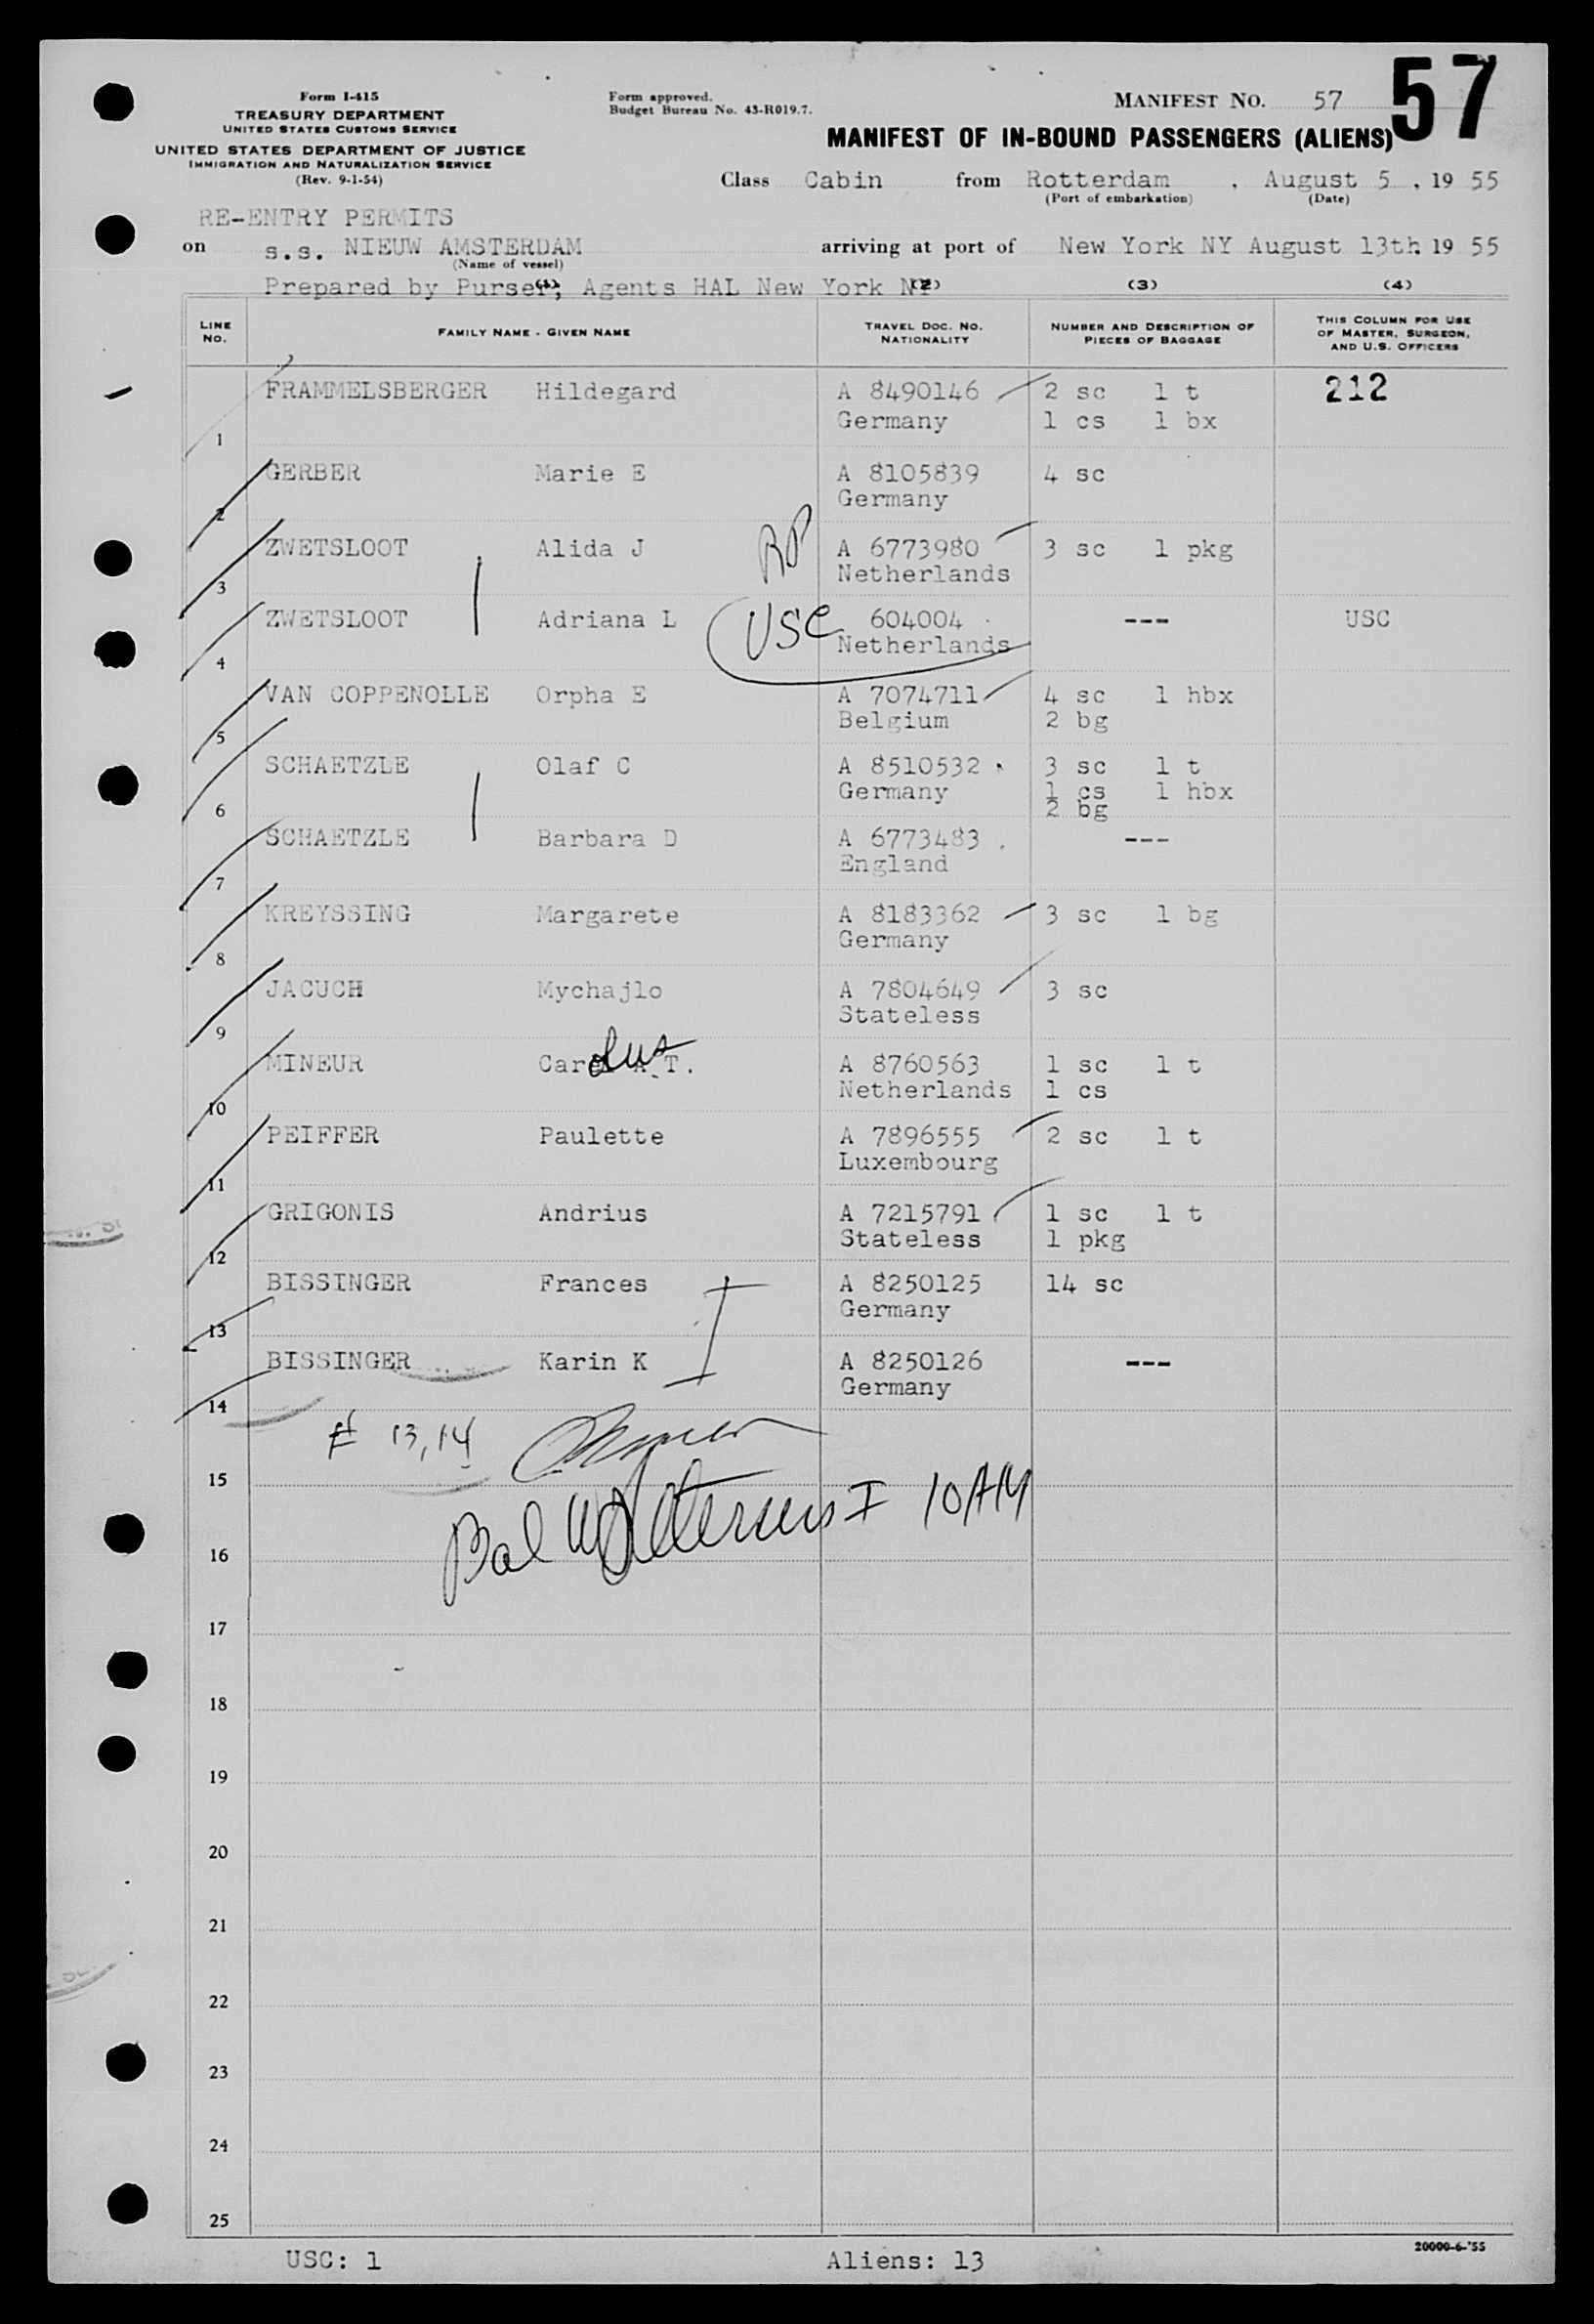 57
Form I-415
TREASURY DEPARTMENT
UNITED STATES CUSTOMS SERVICE
UNITED STATES DEPARTMENT OF JUSTICE
IMMIGRATION AND NATURALIZATION SERVICE
(Rev. 9-1-54)
Form approved.
Budget Bureau No. 43-R019.7.
MANIFEST NO. 57
MANIFEST OF IN-BOUND PASSENGERS (ALIENS)
Class Cabin from Rotterdam , August 5 , 19 55
(Port of embarkation) (Date)
RE-ENTRY PERMITS
on s.s. NIEUW AMSTERDAM arriving at port of New York NY August 13th 19 55
(Name of vessel)
Prepared by Purser, Agents HAL New York NY
(1) (2) (3) (4)
LINE NO. FAMILY NAME - GIVEN NAME TRAVEL DOC. NO. NATIONALITY NUMBER AND DESCRIPTION OF PIECES OF BAGGAGE THIS COLUMN FOR USE OF MASTER, SURGEON, AND U.S. OFFICERS
FRAMMELSBERGER Hildegard A 8490146 2 sc 1 t 212
1 Germany 1 cs 1 bx
GERBER Marie E A 8105839 4 sc
2 Germany
ZWETSLOOT Alida J RP A 6773980 3 sc 1 pkg
3 Netherlands
ZWETSLOOT Adriana L USC 604004 --- USC
4 Netherlands
VAN COPPENOLLE Orpha E A 7074711 4 sc 1 hbx
5 Belgium 2 bg
SCHAETZLE Olaf C A 8510532 3 sc 1 t
6 Germany 1 cs 1 hbx
2 bg
SCHAETZLE Barbara D A 6773483 ---
7 England
KREYSSING Margarete A 8183362 3 sc 1 bg
8 Germany
JACUCH Mychajlo A 7804649 3 sc
9 Stateless
MINEUR Carolus A.T. A 8760563 1 sc 1 t
10 Netherlands 1 cs
PEIFFER Paulette A 7896555 2 sc 1 t
11 Luxembourg
GRIGONIS Andrius A 7215791 1 sc 1 t
12 Stateless 1 pkg
BISSINGER Frances A 8250125 14 sc
13 Germany
BISSINGER Karin K A 8250126 ---
14 Germany
13, 14
15
Bal I 10 AM
16
17
18
19
20
21
22
23
24
25
20000-6-'55
USC: 1 Aliens: 13